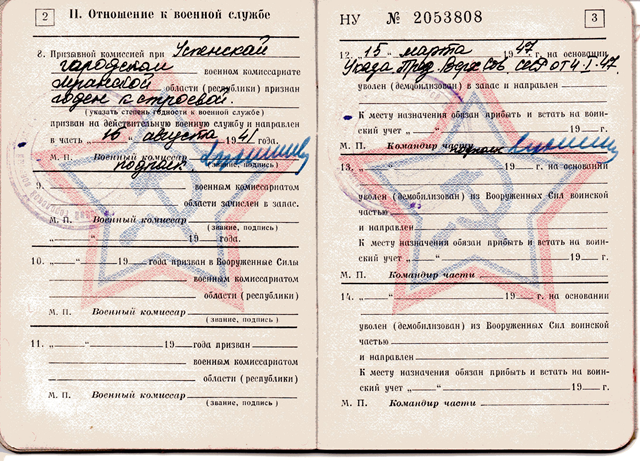 2
II. Отношение к военной службе
8. Призывной комиссией при Успенской
городском военном комиссариате
области (республики) признан
годен к строевой.
(указать степень годности к военной службе)
призван на действительную военную службу и направлен
в часть „16“ августа 1941 года.
М. П. Военный комиссар
подполк. (звание, подпись)
9. военным комиссариатом
области зачислен в запас.
М. П. Военный комиссар
(звание, подпись)
„ “ 19 года.
10. „ “ 19 года призван в Вооруженные Силы
военным комиссариатом
области (республики)
М. П. Военный комиссар
(звание, подпись)
11. „ “ 19 года призван
военным комиссариатом
области (республики)
М. П. Военный комиссар
(звание, подпись)
НУ № 2053808
3
12. „15“ марта 1947 г. на основании
Указа През. Верх Сов. СССР от 4.I.47.
уволен (демобилизован) в запас и направлен
К месту назначения обязан прибыть и встать на во-
инский учет „ “ 19 г.
М. П. Командир части подполк
13. „ “ 19 г. на основании
уволен (демобилизован) из Вооруженных Сил воинской
частью
и направлен
К месту назначения обязан прибыть и встать на воин-
ский учет „ “ 19 г.
М. П. Командир части
14. „ “ 19 г. на основании
уволен (демобилизован) из Вооруженных Сил воинской
частью
и направлен
К месту назначения обязан прибыть и встать на воин-
ский учет „ “ 19 г.
М. П. Командир части